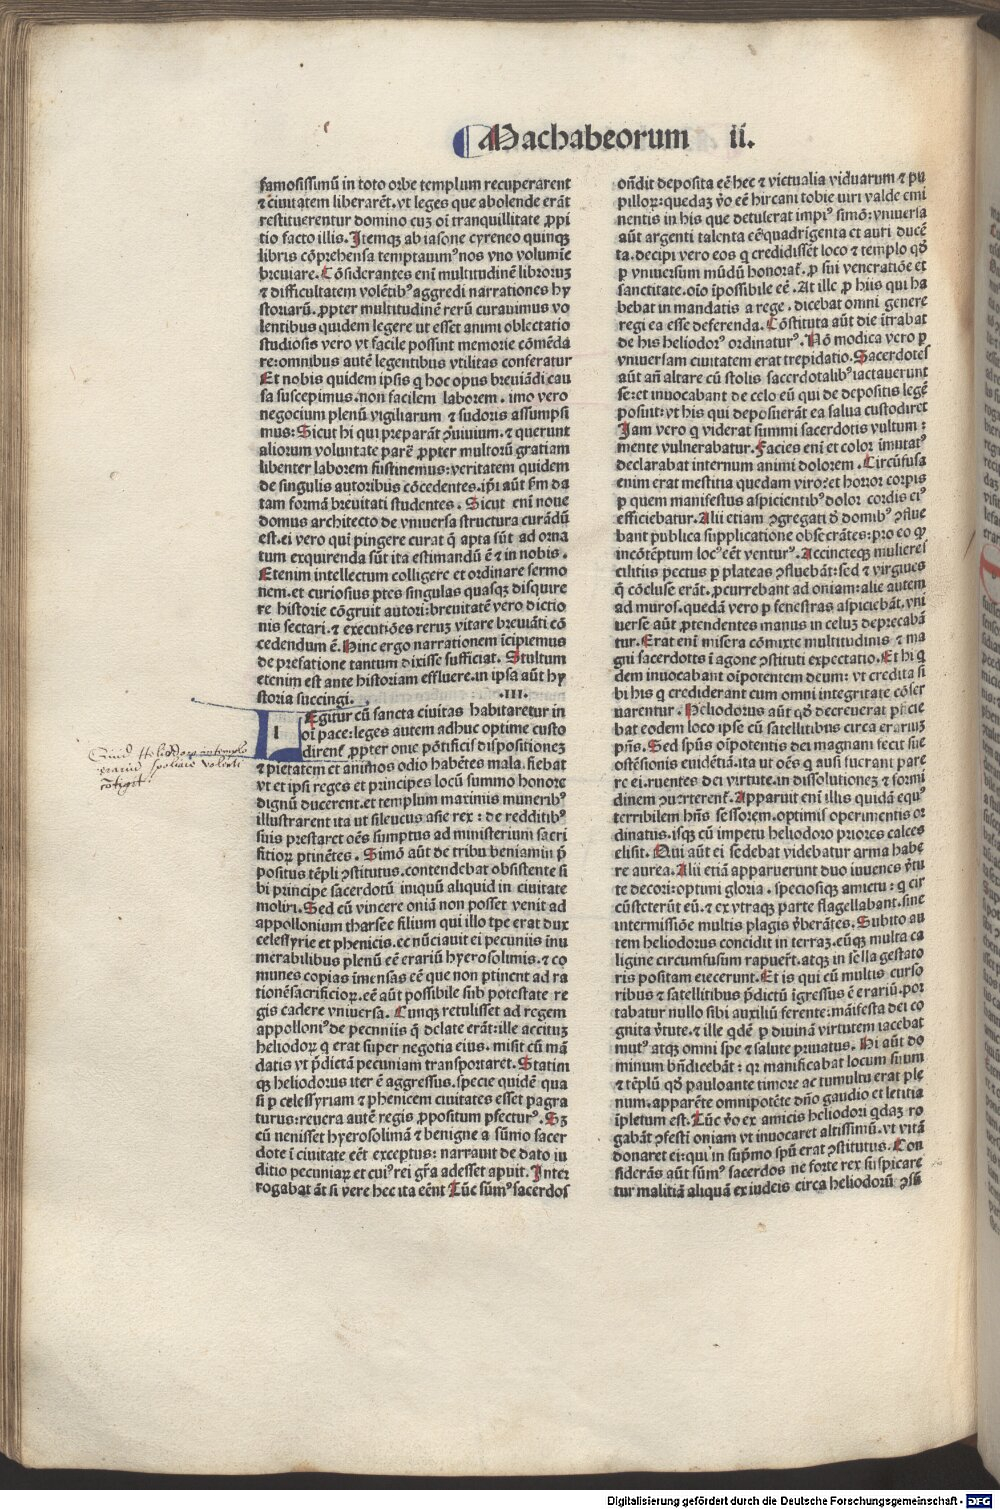 Machabeorum ii.
famosissimū in toto orbe templum recuperarent
⁊ ciuitatem liberarēt. vt leges que abolende erāt
restituerentur domino cuʒ oī tranquillitate ꝓpi
tio facto illis. Itemqʒ ab iasone cyreneo quinqʒ
libris cōprehensa temptauim⁹ nos vno volumīe
breuiare. Cōsiderantes eni multitudinē libroruʒ
⁊ difficultatem volētib⁹ aggredi narrationes hy
storiarū. ꝓpter multitudinē rerū curauimus vo
lentibus quidem legere ut esset animi oblectatio
studiosis vero vt facile possint memorie cōmēda
re: omnibus autē legentibus vtilitas conferatur
Et nobis quidem ipsis q hoc opus breuiādi cau
sa suscepimus. non facilem laborem. imo vero
negocium plenū vigiliarum ⁊ sudoris assumpsi
mus: Sicut hi qui preparāt ꝯuiuium. ⁊ querunt
aliorum voluntate parē ꝓpter multorū gratiam
libenter laborem sustinemus: veritatem quidem
de singulis autoribus cōcedentes. ipi aūt sm da
tam formā breuitati studentes. Sicut eni noue
domus architecto de vniuersa structura curādū
est. ei vero qui pingere curat q̄ apta sūt ad orna
tum exquirenda sūt ita estimandū ē ⁊ in nobis.
Etenim intellectum colligere et ordinare sermo
nem. et curiosius ptes singulas quasqʒ disquire
re historie cōgruit autori: breuitatē vero dictio
nis sectari. ⁊ executiōes reruʒ vitare breuiāti cō
cedendum ē. Hinc ergo narrationem īcipiemus
de prefatione tantum dixisse sufficiat. Stultum
etenim est ante historiam effluere. in ipsa aūt hy
storia succingi. .III.
IEgitur cū sancta ciuitas habitaretur in
oī pace: leges autem adhuc optime custo
dirent̄ ꝓpter onie pōtificis dispositioneʒ
⁊ pietatem et animos odio habētes mala. fiebat
vt et ipsi reges et principes locū summo honore
dignū ducerent. et templum maximis munerib⁹
illustrarent ita ut sileucus asie rex: de redditib⁹
suis prestaret oēs sumptus ad ministerium sacri
ficioꝝ ptinētes. Simō aūt de tribu beniamin p̄
positus tēpli ꝯstitutus. contendebat obsistente si
bi principe sacerdotū iniquū aliquid in ciuitate
moliri. Sed cū vincere oniā non posset venit ad
appollonium tharsee filium qui illo tpe erat dux
celessyrie et phenicis. et nūciauit ei pecuniis inu
merabilibus plenū eē erariū hyerosolimis. ⁊ co
munes copias īmensas eē que non ptinent ad ra
tionē sacrificioꝝ. eē aūt possibile sub potestate re
gis cadere vniuersa. Cunqʒ retulisset ad regem
appolloni⁹ de pecuniis q̄ delate erāt: ille accituʒ
heliodoꝝ q erat super negotia eius. misit cū mā
datis vt p̄dictā pecuniam transportaret. Statim
qʒ heliodorus iter ē aggressus. specie quidē qua
si p celessyriam ⁊ phenicem ciuitates esset pagra
turus: reuera autē regis ꝓpositum pfectur⁹. Sʒ
cū uenisset hyerosolimā ⁊ benigne a sūmo sacer
dote ī ciuitate eēt exceptus: narrauit de dato iu
ditio pecuniaꝝ et cui⁹ rei gr̄a adesset apuit. Inter
rogabat āt si vere hec ita eēnt Tūc sūm⁹ sacerdos
on̄dit deposita eē hec ⁊ victualia viduarum ⁊ pu
pilloꝝ: quedaʒ v̄o eē hircani tobie uiri valde emi
nentis in his que detulerat impi⁹ simō: vniuersa
aūt argenti talenta eē quadrigenta et auri ducē
ta. decipi vero eos q credidissēt loco ⁊ templo qđ
p vniuersum mūdū honorat̄. ꝓ sui veneratiōe et
sanctitate. oīo īpossibile eē. At ille ꝓ hiis qui ha
bebat in mandatis a rege. dicebat omni genere
regi ea esse deferenda. Cōstituta aūt die ītrabat
de his heliodor⁹ ordinatur⁹. Nō modica vero p
vniuersam ciuitatem erat trepidatio. Sacerdotes
aūt an̄ altare cū stolis sacerdotalib⁹ iactauerunt
se: et inuocabant de celo eū qui de depositis legē
posuit: vt his qui deposuerāt ea salua custodiret
Jam vero q viderat summi sacerdotis vultum:
mente vulnerabatur. Facies eni et color īmutat⁹
declarabat internum animi dolorem. Circūfusa
enim erat mestitia quedam viro: et horror corpis
p quem manifestus aspicientib⁹ dolor cordis ei⁹
efficiebatur. Alii etiam ꝯgregati đ domib⁹ ꝯflue
bant publica supplicatione obsecrātes: pro eo qđ
incōtēptum loc⁹ eēt ventur⁹. Accincteqʒ mulieres
ciliciis pectus p plateas ꝯfluebāt: sed ⁊ virgines
q̄ cōcluse erāt. ꝓcurrebant ad oniam: alie autem
ad muros. quedā vero p fenestras aspiciebāt. vni
uerse aūt ꝓtendentes manus in celuʒ deprecabā
tur. Erat eni misera cōmixte multitudinis ⁊ ma
gni sacerdotis ī agone ꝯstituti expectatio. Et hi q
dem inuocabant oīpotentem deum: vt credita si
bi his q crediderant cum omni integritate cōser
uarentur. Heliodorus aūt qđ decreuerat pficie
bat eodem loco ipse cū satellitibus circa erariuʒ
p̄ns. Sed spūs oīpotentis dei magnam fecit sue
ostēsionis euidētiā. ita ut oēs q ausi fuerant pare
re ei. ruentes dei virtute. in dissolutioneʒ ⁊ formi
dinem ꝯuerterent̄. Apparuit eni illis quidā equ⁹
terribilem hn̄s sessorem. optimis operimentis or
dinatus. isqʒ cū impetu heliodoro priores calces
elisit. Qui aūt ei sedebat videbatur arma habe
re aurea. Alii etiā apparuerunt duo iuuenes v̄tu
te decori: optimi gloria. speciosiqʒ amictu: q cir
cūsteterūt eū. ⁊ ex vtraqʒ parte flagellabant. sine
intermissiōe multis plagis v̄berātes. Subito au
tem heliodorus concidit in terraʒ. eūqʒ multa ca
ligine circumfusum rapuerūt. atqʒ in sella gestato
ris positam eiecerunt. Et is qui cū multis curso
ribus ⁊ satellitibus p̄dictū īgressus ē erariū. por
tabatur nullo sibi auxiliū ferente: māifesta dei co
gnita v̄tute. ⁊ ille qdē p diuinā virtutem iacebat
mut⁹ atqʒ omni spe ⁊ salute priuatus. Hi aūt do
minum bn̄dicebāt: qꝛ manificabat locum suum
⁊ tēplū qđ pauloante timore ac tumultu erat ple
num. apparēte omnipotēte dn̄o gaudio et letitia
īpletum est. Tūc v̄o ex amicis heliodori qdaʒ ro
gabāt ꝯfesti oniam vt inuocaret altissimū. vt vitā
donaret ei: qui in sup̄mo spū erat ꝯstitutus. Con
siderās aūt sūm⁹ sacerdos ne forte rex suspicare
tur malitiā aliquā ex iudeis circa heliodorū ꝯsū
Quid Heliodoro templo
erariū spoliare volenti
cōtigit
Digitalisierung gefördert durch die Deutsche Forschungsgemeinschaft - DFG